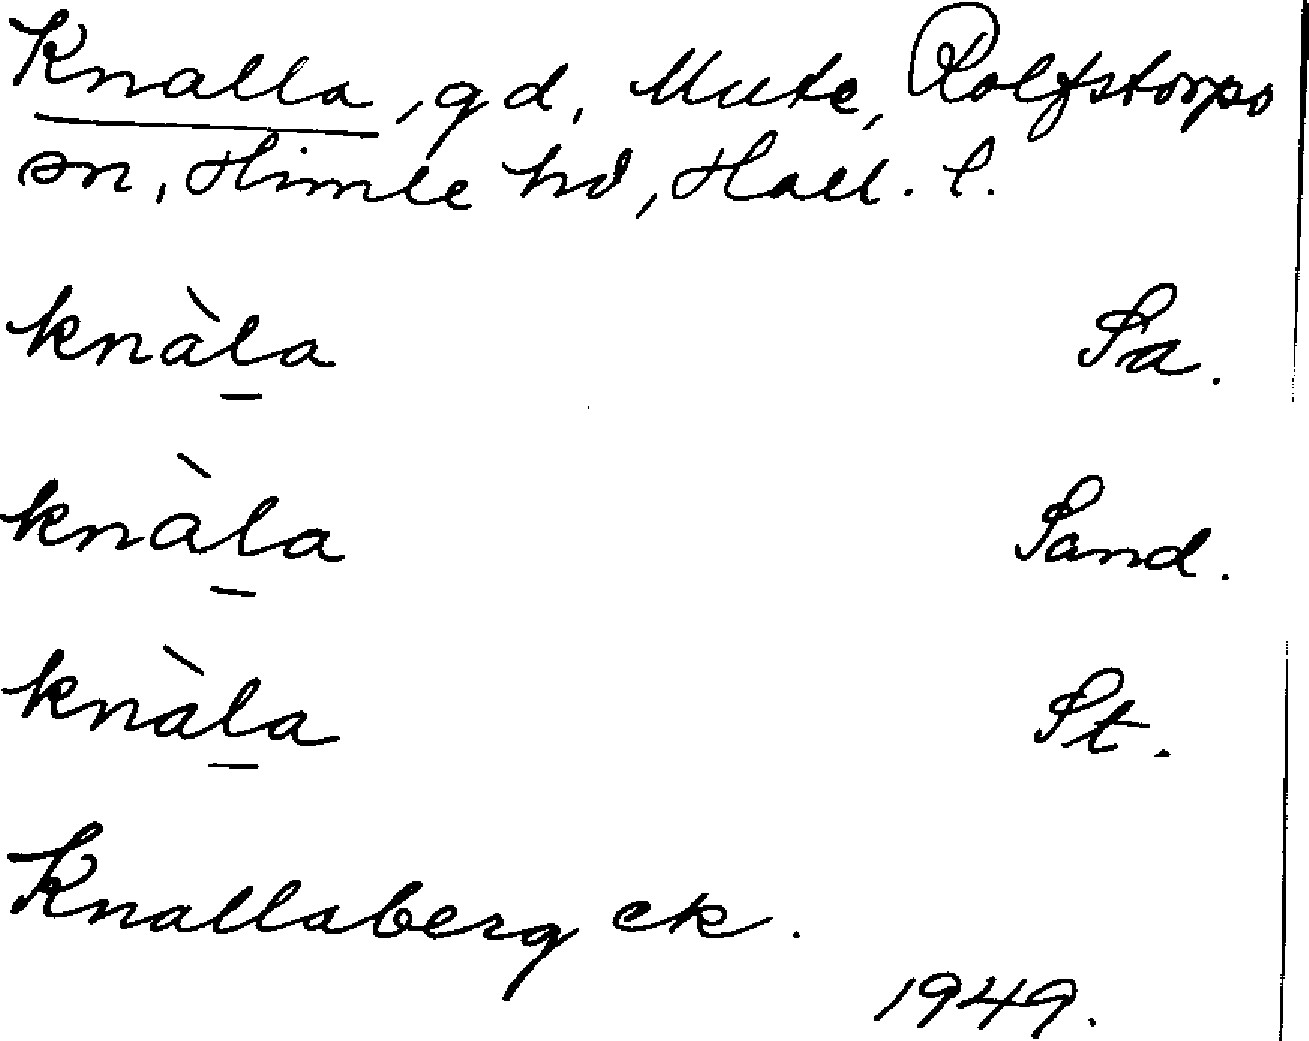 Knalla, gd, Mute, Rolfstorps
sn, Himle hd, Hall. l.
knàl̠a Sa.
knàl̠a Sand.
knàl̠a St.
Knallaberg ek.
1949.